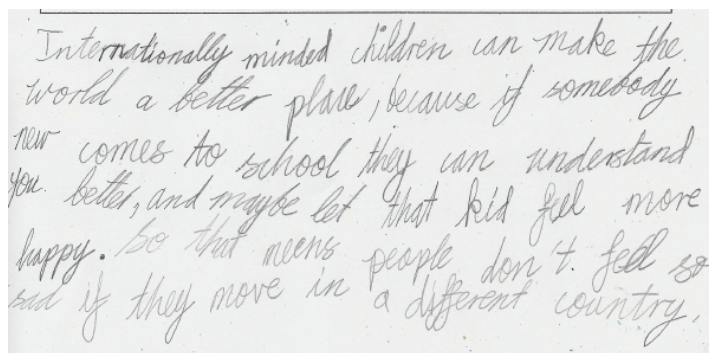 Internationally minded children can make the
world a better place, because if somebody
new comes to school they can understand
you. better, and maybe let that kid feel more
happy. So that meens people don't. feel so
sad if they move in a different country.